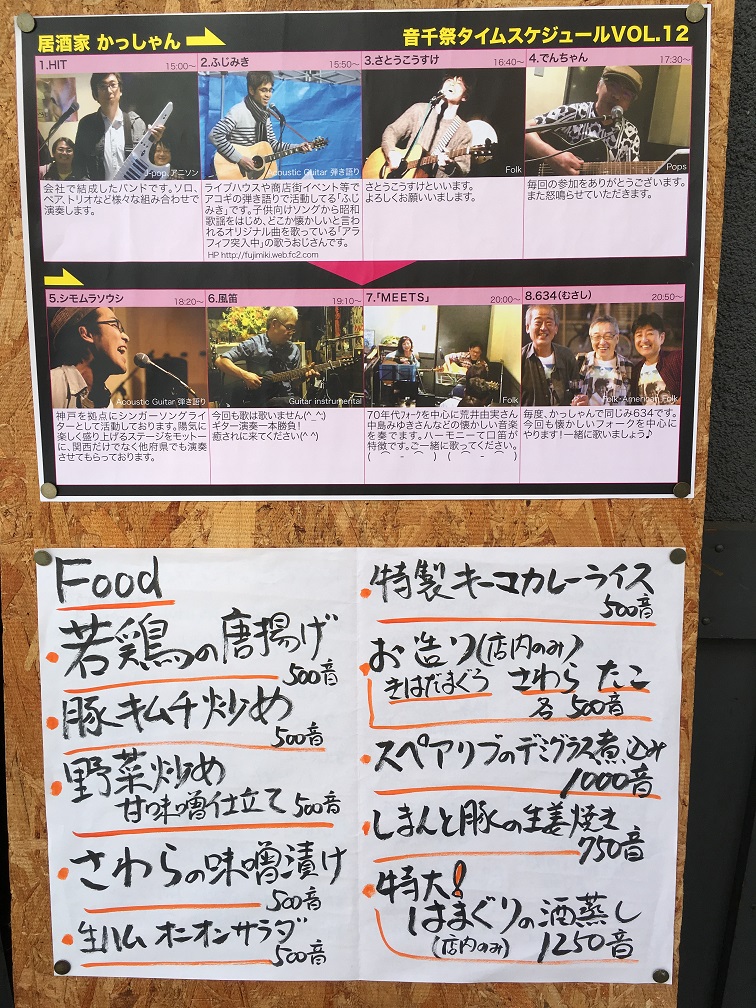 居酒家 かっしゃん
音千祭タイムスケジュールVOL.12
1.HIT 15:00～
J-pop, アニソン
会社で結成したバンドです。ソロ、
ペア、トリオなど様々な組み合わせで
演奏します。
2.ふじみき 15:50～
Acoustic Guitar 弾き語り
ライブハウスや商店街イベント等で
アコギの弾き語りで活動してる「ふじ
みき」です。子供向けソングから昭和
歌謡をはじめ、どこか懐かしいと言わ
れるオリジナル曲を歌っている「アラ
フィフ突入中」の歌うおじさんです。
HP http://fujimiki.web.fc2.com
3.さとうこうすけ 16:40～
Folk
さとうこうすけといいます。
よろしくお願いいもします。
4.でんちゃん 17:30～
Pops
毎回の参加をありがとうございます。
また怒鳴らせていただきます。
5.シモムラソウシ 18:20～
Acoustic Guitar 弾き語り
神戸を拠点にシンガーソングライ
ターとして活動しております。陽気に
楽しく盛り上げるステージをモットー
に、関西だけでなく他府県でも演奏
させてもらっております。
6.風笛 19:10～
Guitar instrumental
今回も歌は歌いません(^_^;)
ギター演奏一本勝負！
癒されに来てください(^ ^)
7.「MEETS」 20:00～
Folk
70年代ﾌｫｰｸを中心に荒井由実さん
中島みゆきさんなどの懐かしい音楽
を奏でます。ハーモニーて口笛が
特徴です。ご一緒に歌ってください。
(　⌒　-　⌒　)　(　⌒　-　⌒　)
8.634(むさし) 20:50～
Folk・American Folk
毎度、かっしゃんで同じみ634です。
今回も懐かしいフォークを中心に
やります！一緒に歌いましょう♪
Food
・若鶏の唐揚げ
500音
・豚キムチ炒め
500音
・野菜炒め
甘味噌仕立て 500音
・さわらの味噌漬け
500音
・生ハム オニオンサラダ
500音
・特製キーマカレーライス
500音
・お造り(店内のみ)
きはだまぐろ さわら たこ
各 500音
・スペアリブのデミグラス煮込み
1000音
・しまんと豚の生姜焼き
750音
・特大！
はまぐりの酒蒸し
(店内のみ) 1250音